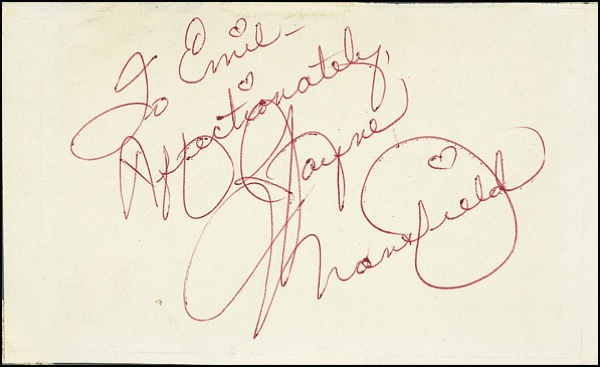 To Emil-
Affectionately,
Jayne
Mansfield